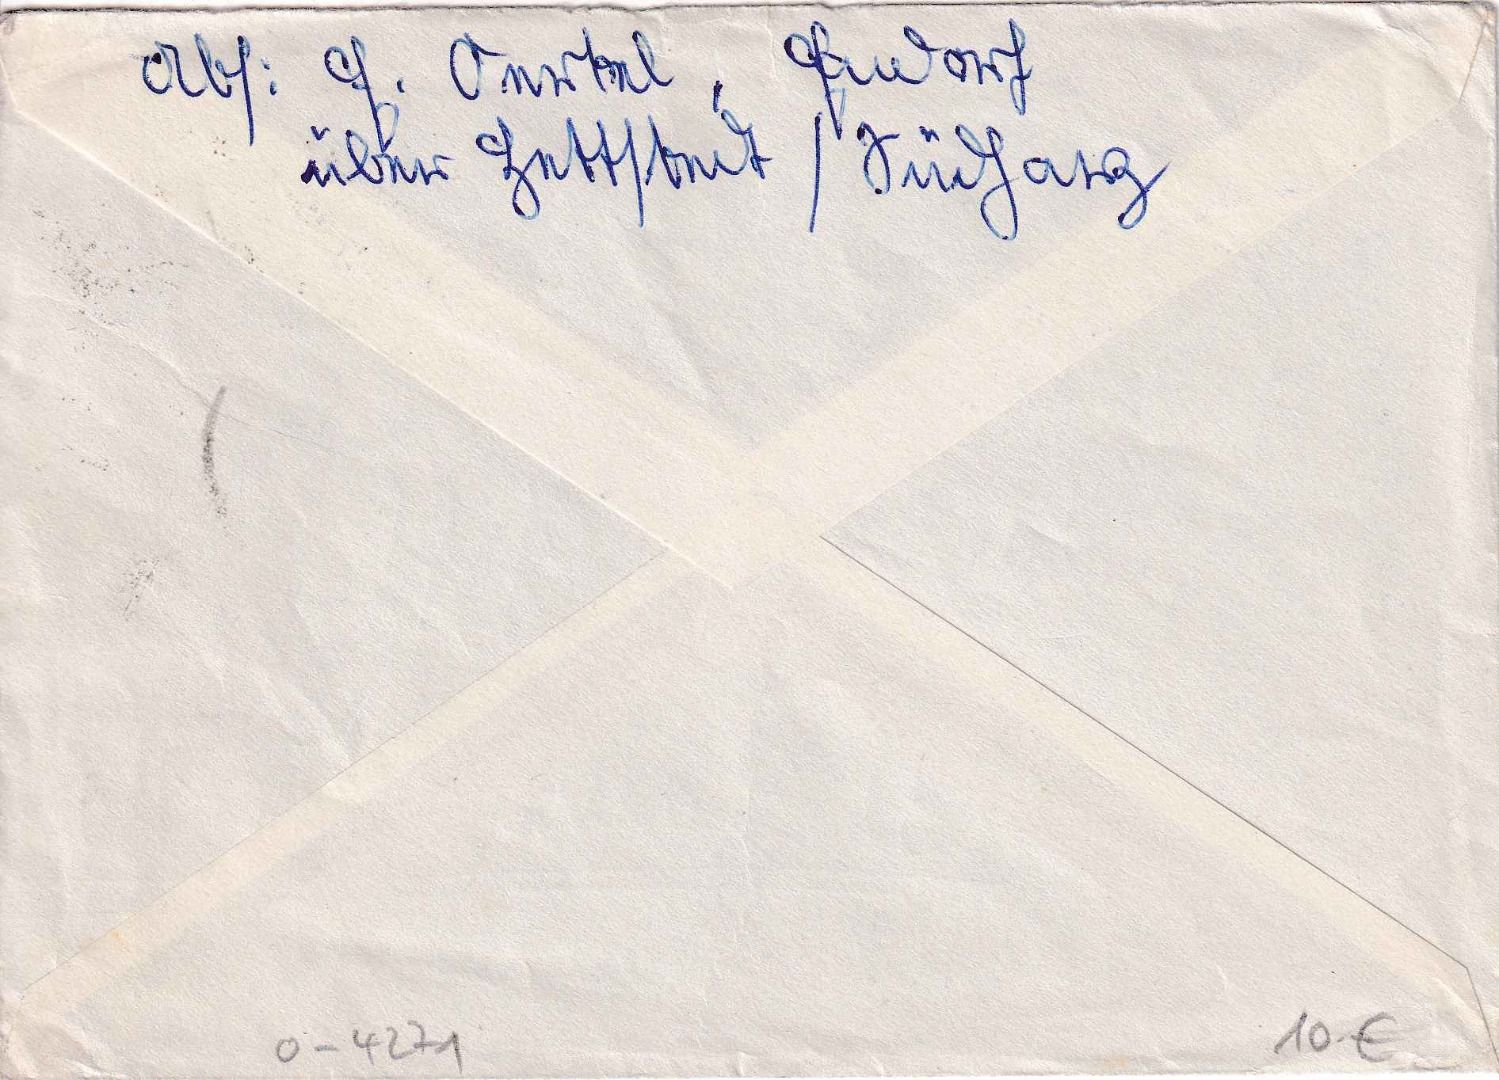 Abs: G. Oertel, Endorf
über Hettstedt / Südharz
0-4271
10.€